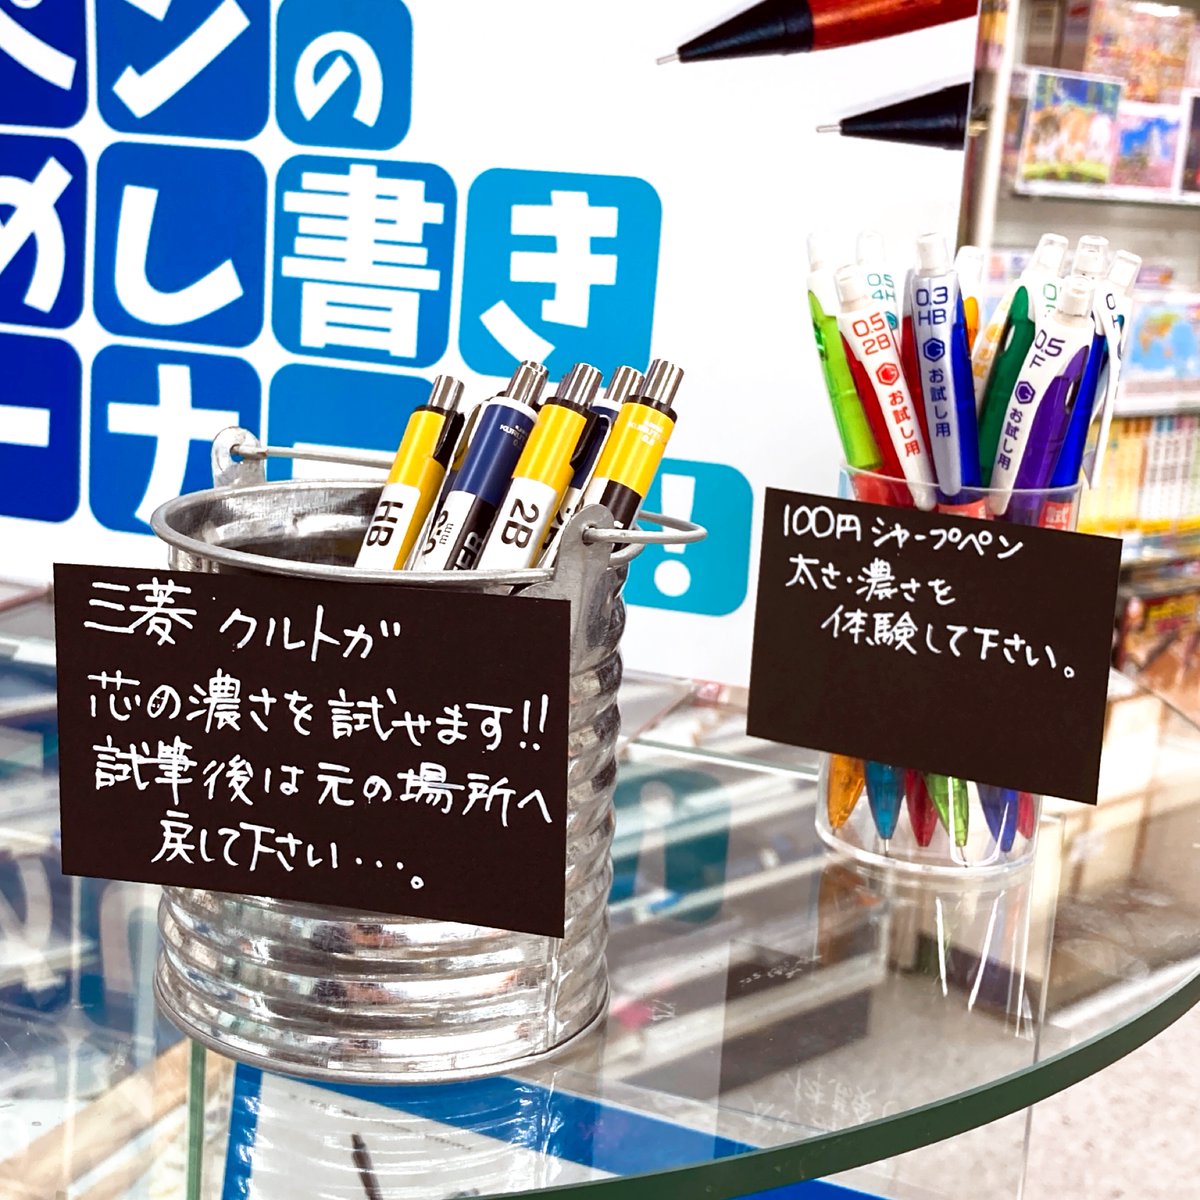 ペンの
めし書き
カー
!
HB
2B
三菱 クルトガ
芯の濃さを試せます!!
試筆後は元の場所へ
戻して下さい・・・。
0.5
4H
0.5
2B
お試し用
0.3
HB
お試し用
0.5
F
お試し用
100円シャープペン
太さ・濃さを
体験して下さい。